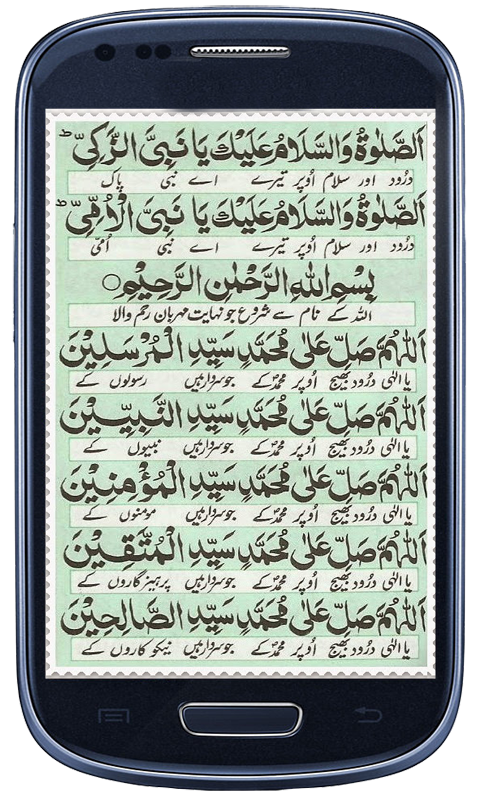 اَلصَّلٰوةُ وَالسَّلَامُ عَلَيْكَ يَا نَبِىَّ الزَّكِىِّ ط
درُود اور سلام اُوپر تیرے اے نبی پاک
اَلصَّلٰوةُ وَالسَّلَامُ عَلَيْكَ يَا نَبِىَّ الْاُمِّىِّ ط
درُود اور سلام اُوپر تیرے اے نبی اُمّی
بِسْمِ اللهِ الرَّحْمٰنِ الرَّحِيْمِ ○
اللہ کے نام سے شروع جو نہایت مہربان رحم والا
اَللّٰهُمَّ صَلِّ عَلٰى مُحَمَّدٍ سَيِّدِ الْمُرْسَلِيْنَ
یا الٰہی درُود بھیج اُوپر محمدؐ کے جو سردار ہیں رسولوں کے
اَللّٰهُمَّ صَلِّ عَلٰى مُحَمَّدٍ سَيِّدِ النَّبِيِّيْنَ
یا الٰہی درُود بھیج اُوپر محمدؐ کے جو سردار ہیں نبیوں کے
اَللّٰهُمَّ صَلِّ عَلٰى مُحَمَّدٍ سَيِّدِ الْمُؤْمِنِيْنَ
یا الٰہی درُود بھیج اُوپر محمدؐ کے جو سردار ہیں مومنوں کے
اَللّٰهُمَّ صَلِّ عَلٰى مُحَمَّدٍ سَيِّدِ الْمُتَّقِيْنَ
یا الٰہی درُود بھیج اُوپر محمدؐ کے جو سردار ہیں پرہیزگاروں کے
اَللّٰهُمَّ صَلِّ عَلٰى مُحَمَّدٍ سَيِّدِ الصَّالِحِيْنَ
یا الٰہی درُود بھیج اُوپر محمدؐ کے جو سردار ہیں نیکوکاروں کے